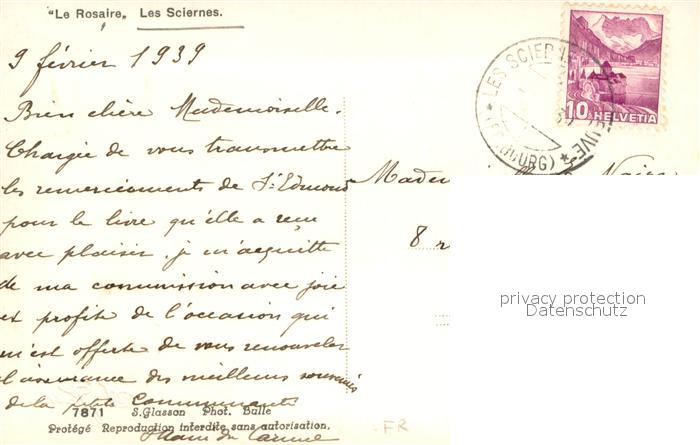 "Le Rosaire" Les Sciernes.
9 février 1939
Bien chère Mademoiselle.
Chargée de vous transmettre
les remerciements de St Edmond
pour le livre qu'elle a reçu
avec plaisir, je m'acquitte
de ma commission avec joie
et profite de l'occasion qui
m'est offerte de vous renouveler
l'assurance des meilleurs souvenirs
de la petite Communauté
7871 S. Glasson Phot. Bulle
Protégé Reproduction interdite sans autorisation.
LES SCIER
BOURG)
10 HELVETIA
Madem
8 r
privacy protection
Datenschutz
FR